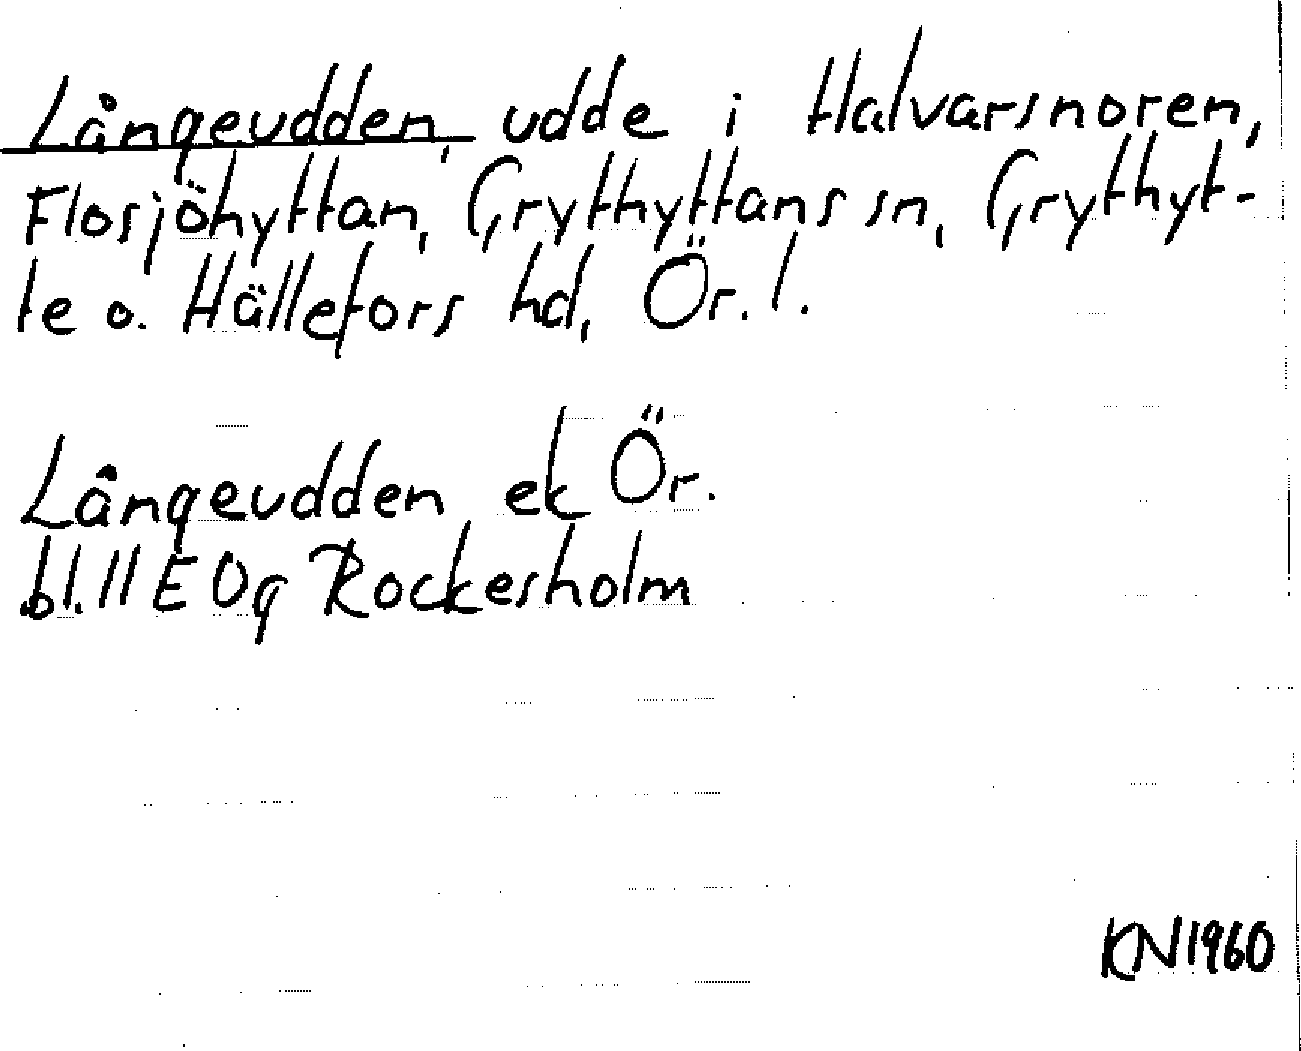 Långeudden, udde i Halvarsnoren,
Flosjöhyttan, Grythyttans sn, Grythyt-
te o. Hällefors hd, Ör. l.
Långeudden ek Ör.
bl. 11 E 0g Rockesholm
KN 1960